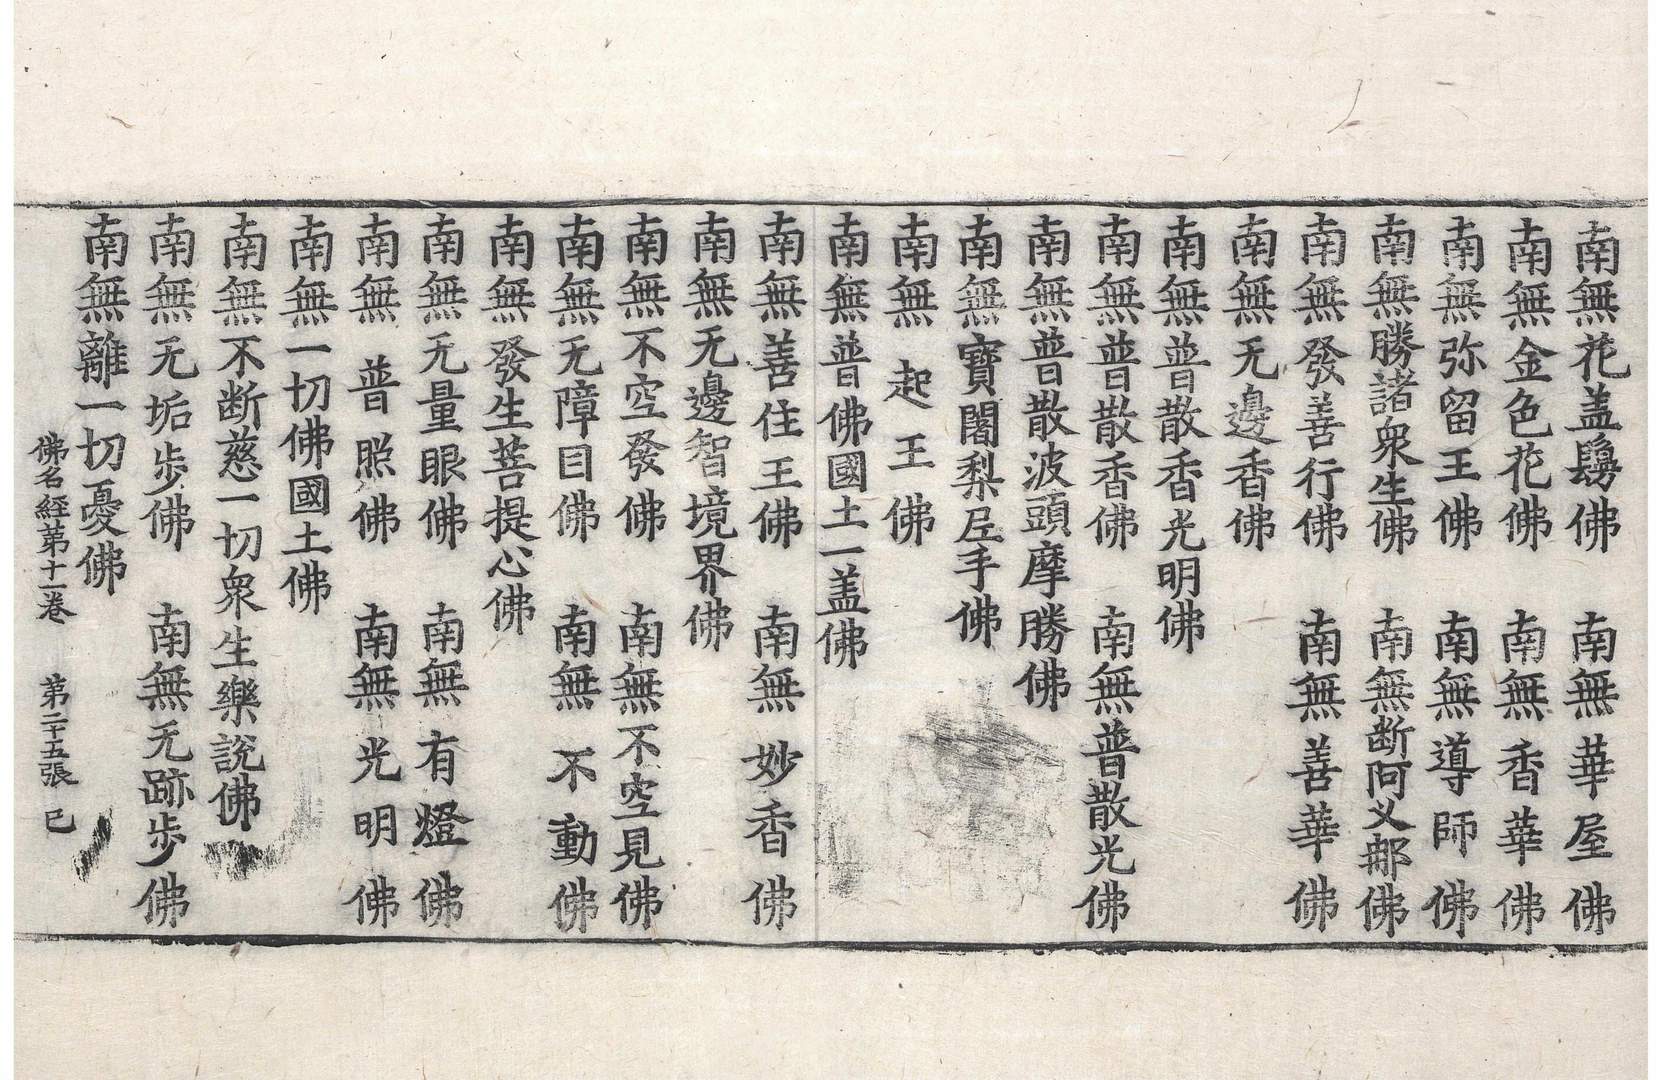 南無花盖鬘佛　南無華屋佛
南無金色花佛　南無香華佛
南無弥留王佛　南無導師佛
南無勝諸衆生佛　南無断阿叉郍佛
南無發善行佛　南無善華佛
南無无邊香佛
南無普散香光明佛
南無普散香佛　南無普散光佛
南無普散波頭摩勝佛
南無寶闍梨尼手佛
南無起王佛
南無普佛國土一盖佛
南無善住王佛　南無妙香佛
南無无邊智境界佛
南無不空發佛　南無不空見佛
南無无障目佛　南無不動佛
南無發生菩提心佛
南無无量眼佛　南無有燈佛
南無普照佛　南無光明佛
南無一切佛國土佛
南無不断慈一切衆生樂說佛
南無无垢步佛　南無无跡步佛
南無離一切憂佛
佛名經第十一卷　第二十五張　巳